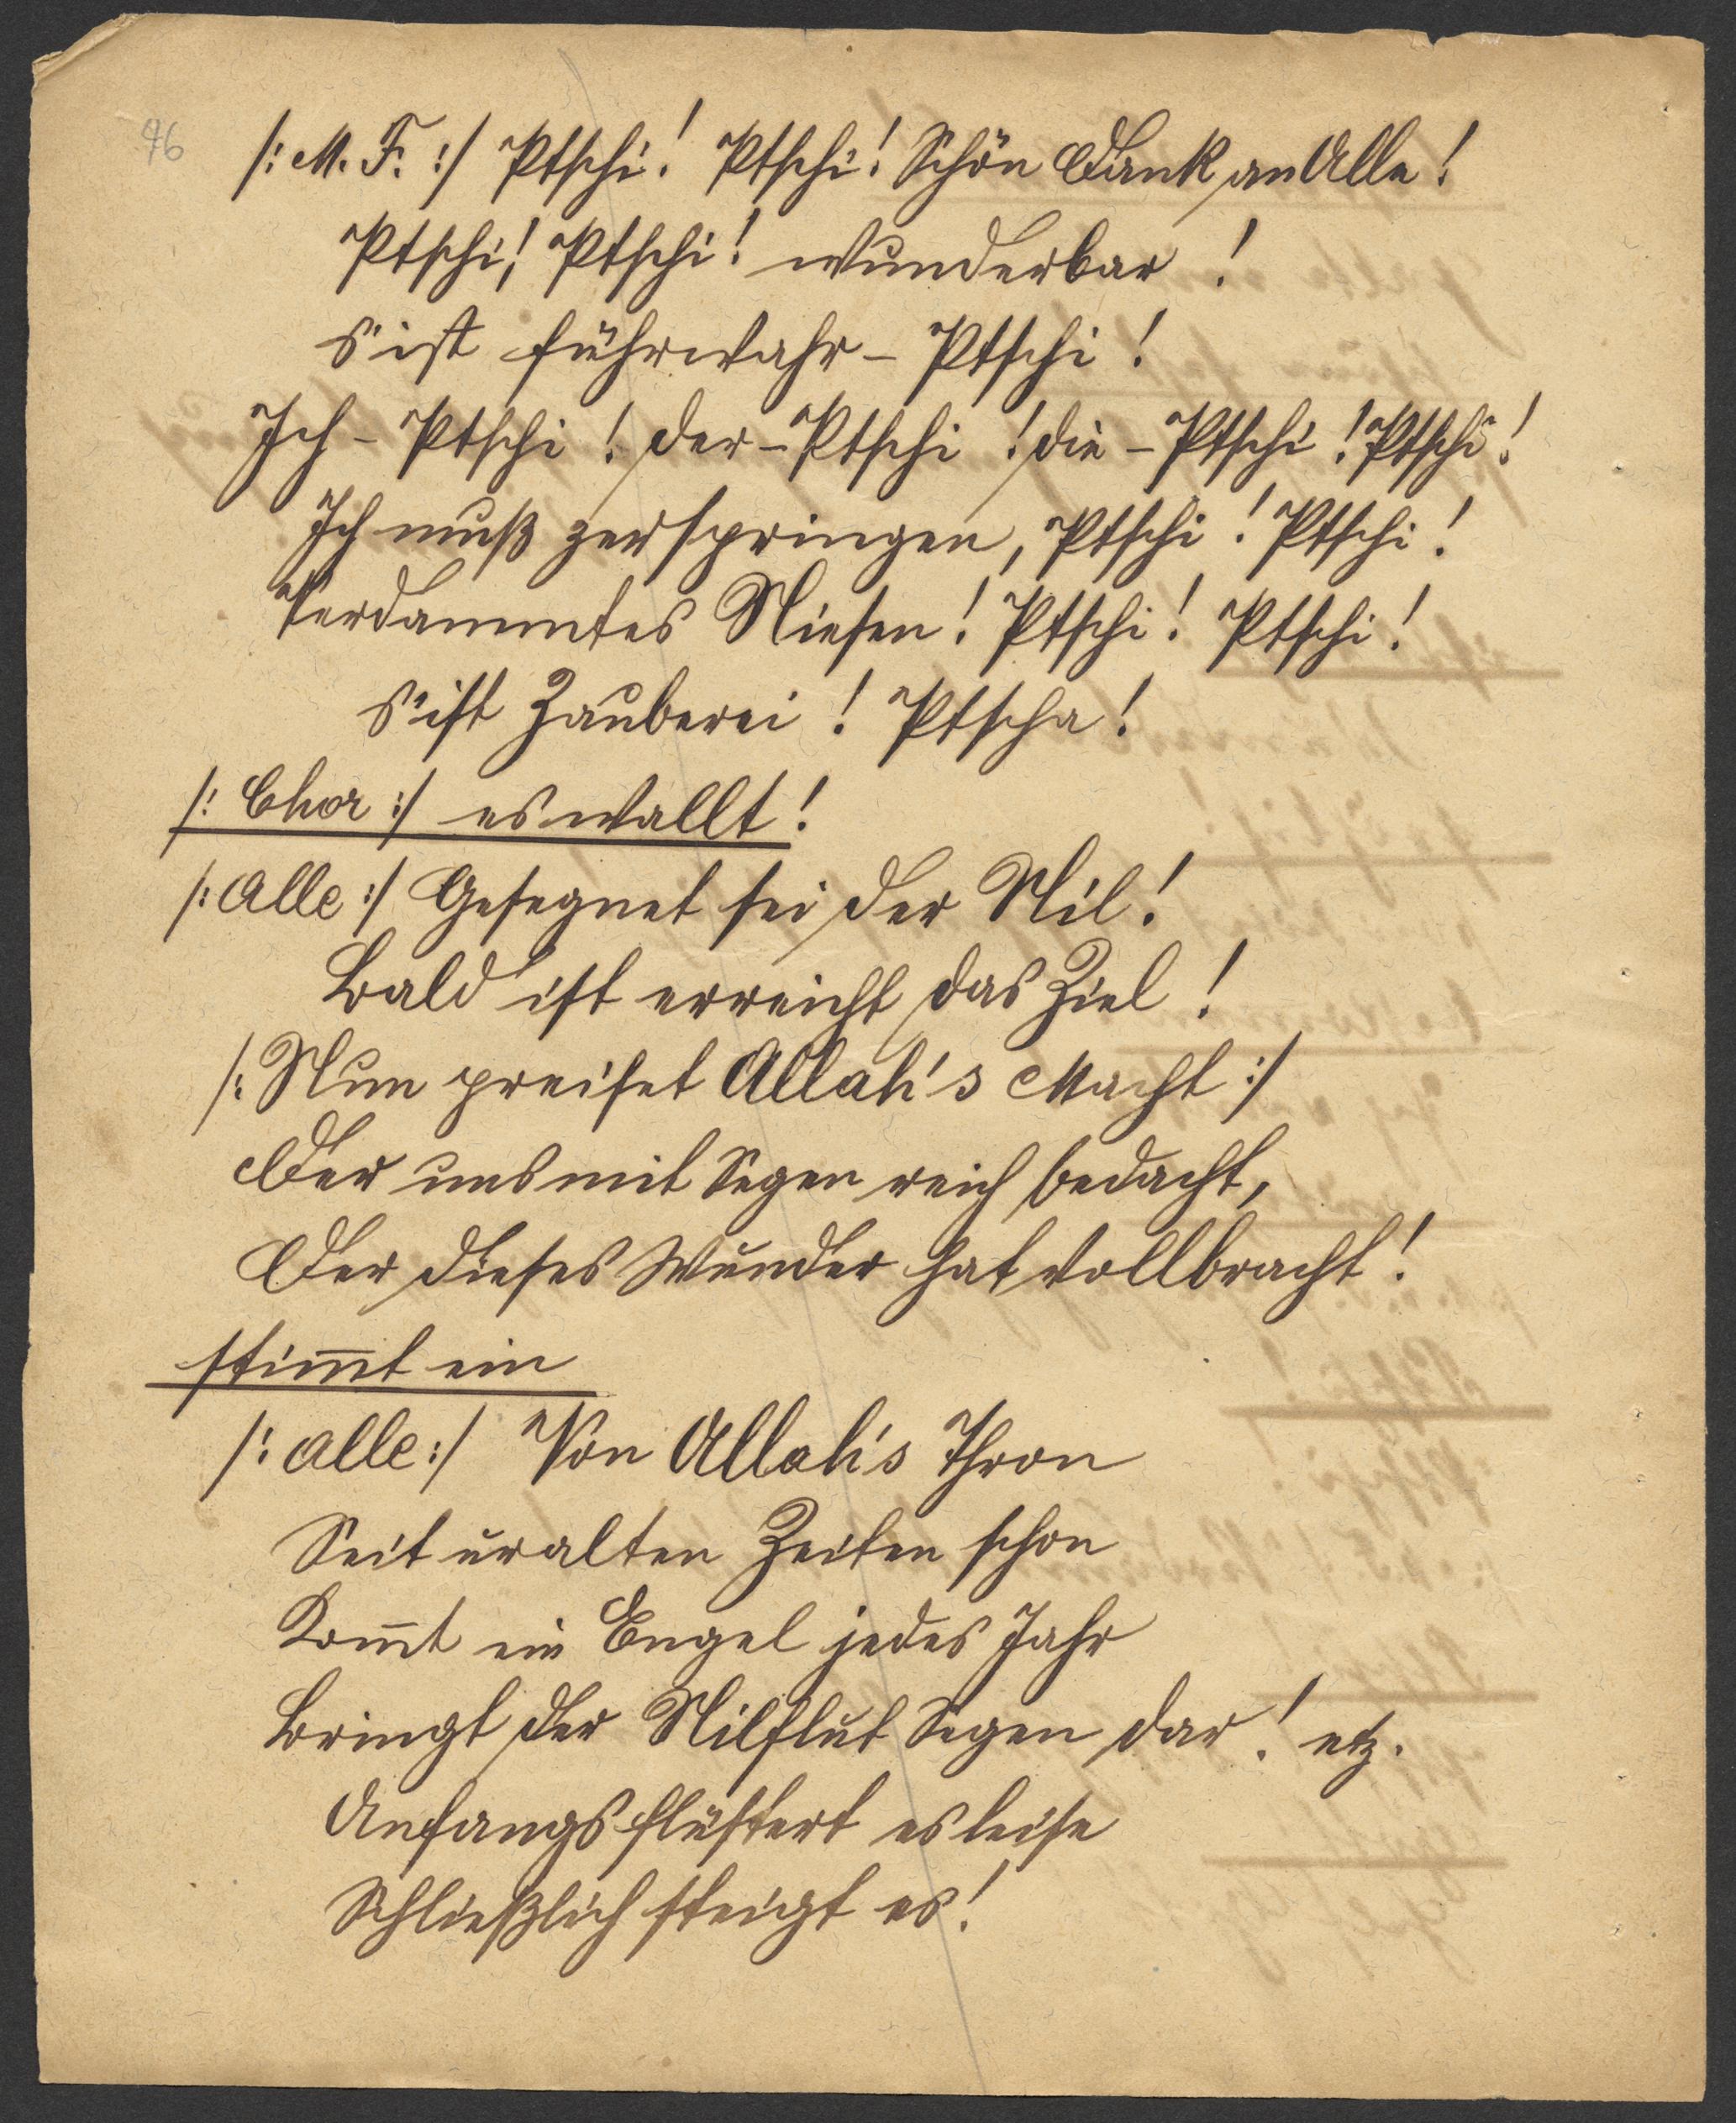 46
/: M. F. :/ Ptschi! Ptschi! Schön Dank an Alle!
Ptschi! Ptschi! wunderbar!
S'ist führwahr – Ptschi!
Ich – Ptschi! der – Ptschi! die – Ptschi! Ptschi!
Ich muß zerspringen, Ptschi! Ptschi!
Verdammtes Niesen! Ptschi! Ptschi!
S'ist Zauberei! Ptscha!
/: Chor :/ es wallt!
/: Alle :/ Gesegnet sei der Nil!
Bald ist erreicht das Ziel!
/: Nun preiset Allah's Macht :/
Der uns mit Segen reich bedacht,
Der dieses Wunder hat vollbracht!
stim̄t ein
/: Alle :/ Von Allah's Thron
Seit uralten Zeiten schon
Kom̄t ein Engel jedes Jahr
Bringt der Nilflut Segen dar! etz.
Anfangs flüstert es leise
Schließlich steigt es!